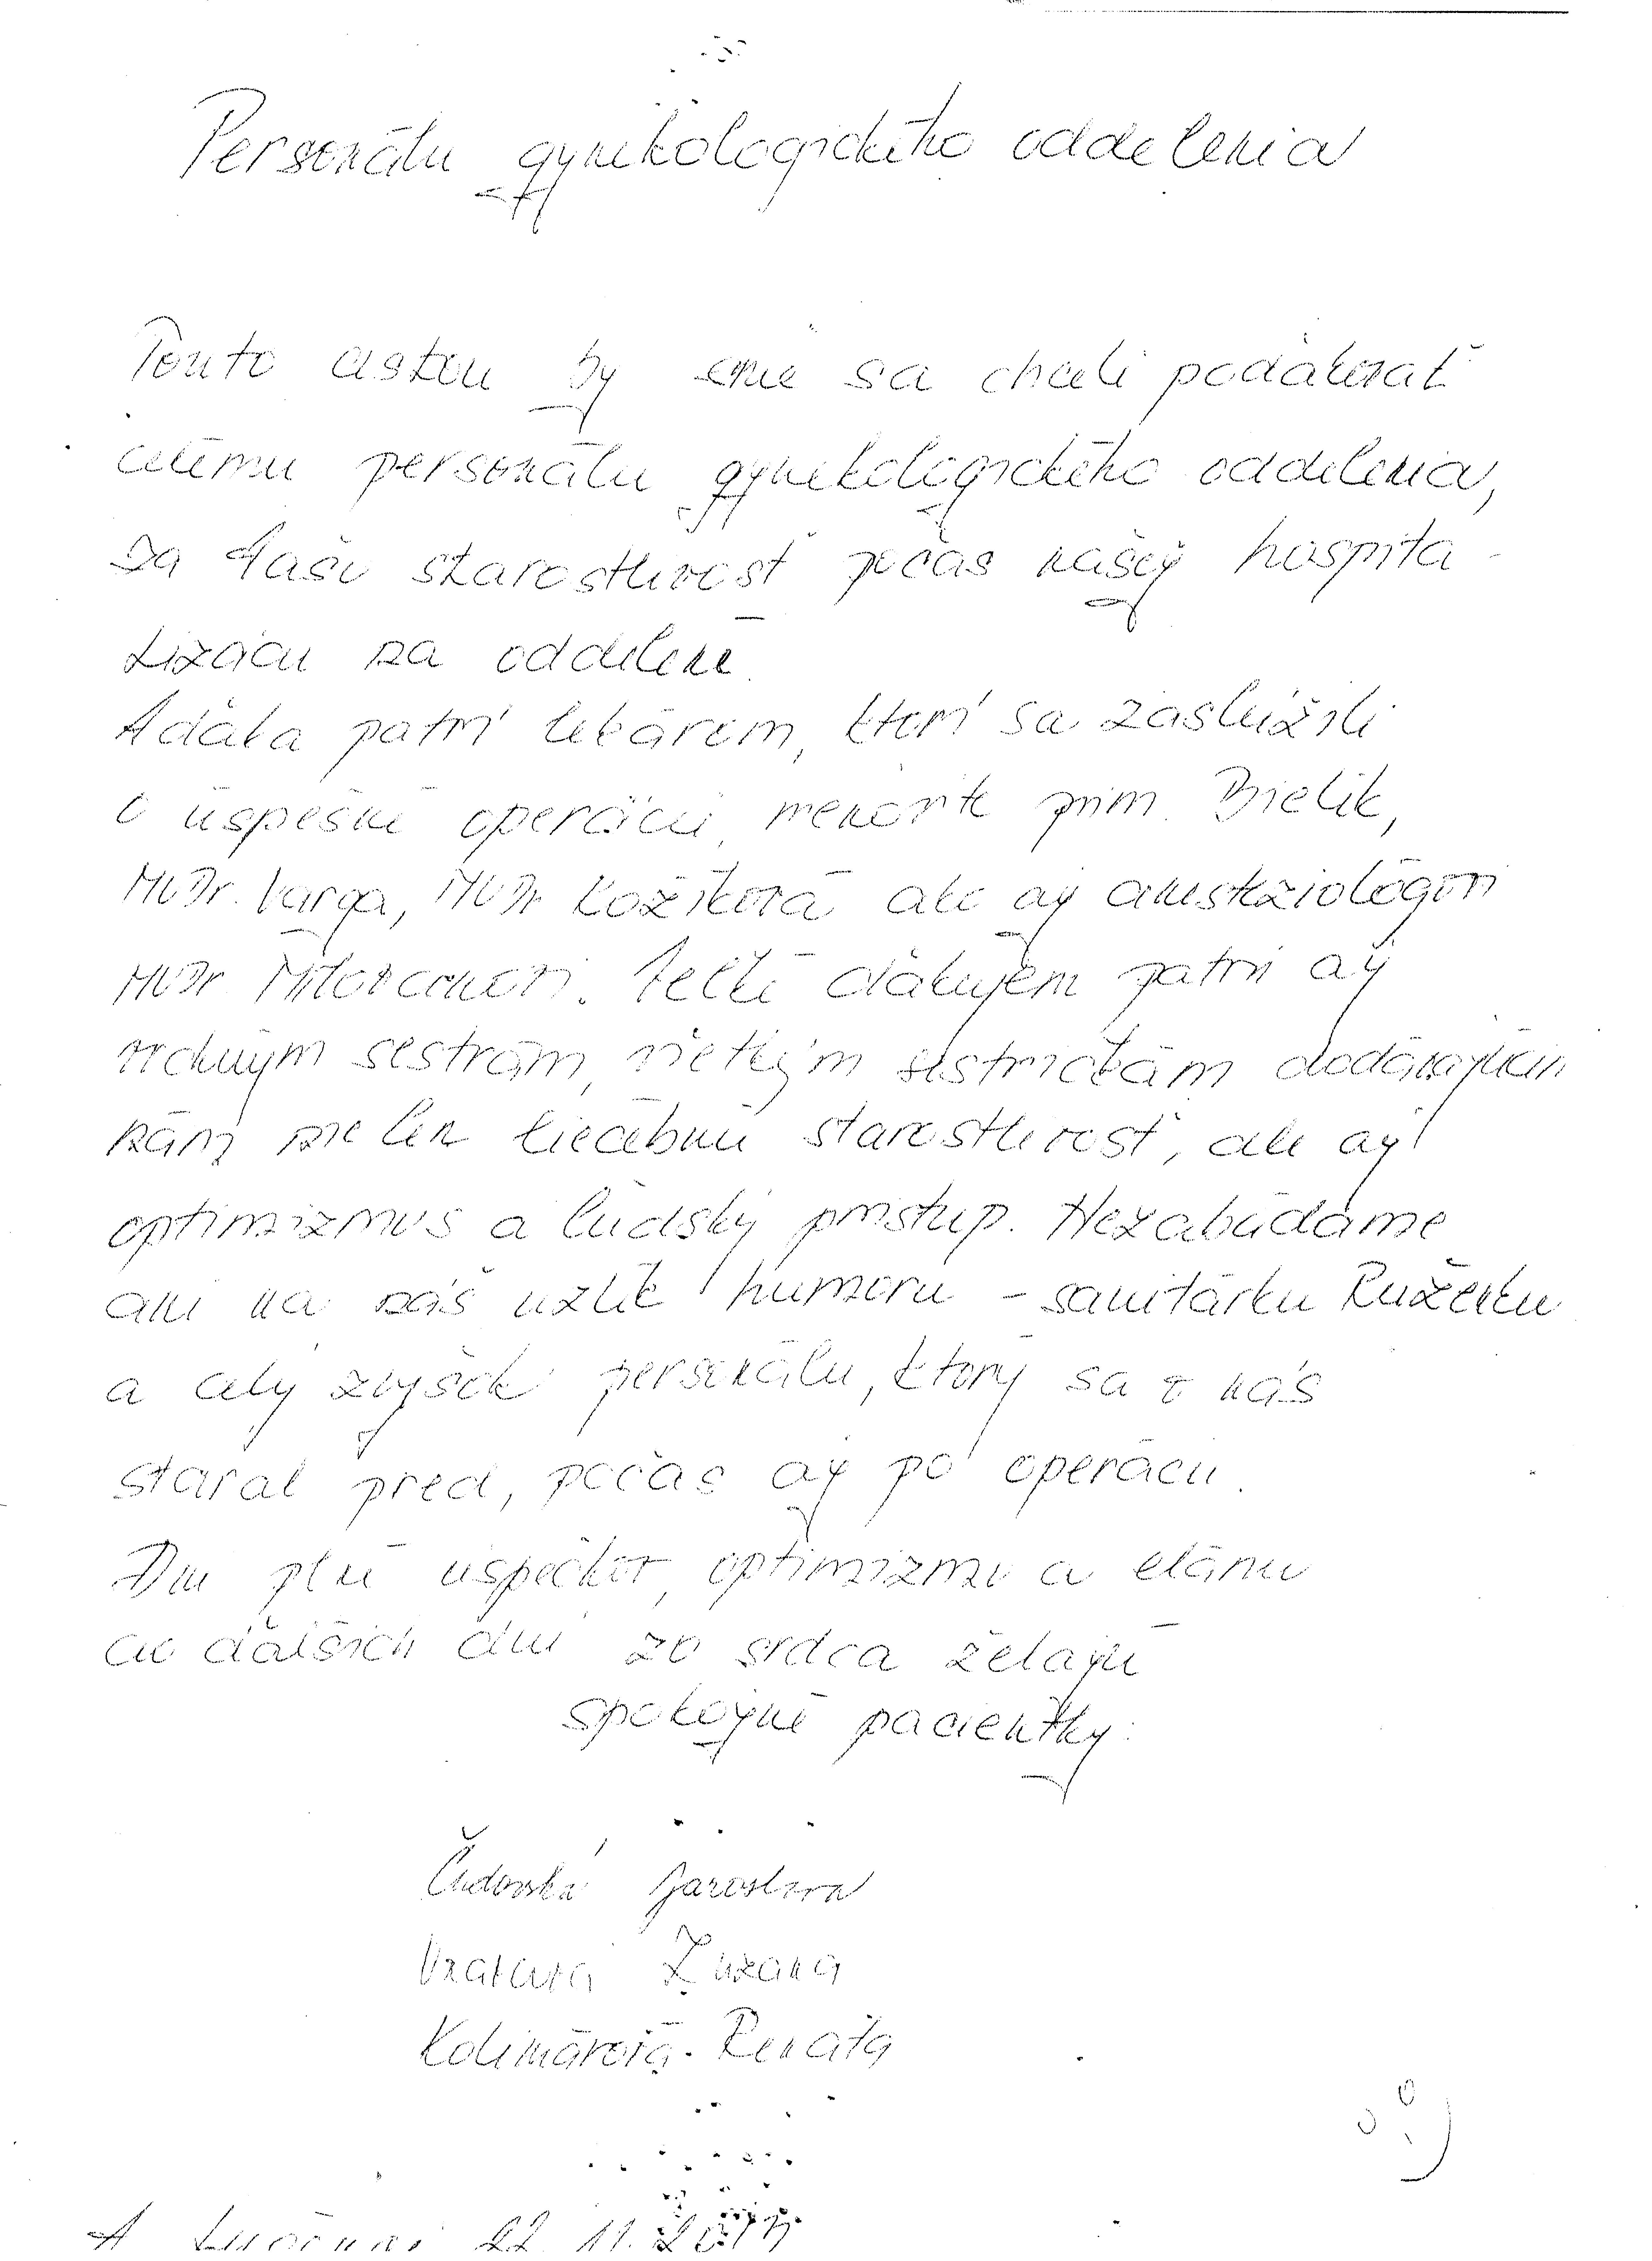 Personálu gynekologického oddelenia
Touto cestou by sme sa chceli poďakovať
celému personálu gynekologického oddelenia,
za Vašu starostlivosť počas našej hospita-
lizácii na oddelení.
Vďaka patrí lekárom, ktorí sa zaslúžili
o úspešnú operáciu, menovite prim. Bielik,
MUDr. Varga, MUDr. Kožíková ale aj anesteziológovi
MUDr. . Veľké ďakujem patrí aj
vrchným sestrám, všetkým sestričkám dodávajúcim
nám nie len liečebnú starostlivosť, ale aj
optimizmus a ľudský prístup. Nezabúdame
ani na náš uzlík humoru - sanitárku Ruženku
a celý zvyšok personálu, ktorý sa o nás
staral pred, počas aj po operácii.
Dni plné úspechov, optimizmu a elánu
do ďalších dní zo srdca želajú
spokojné pacientky:
Čudovská Jaroslava
Zuzana
Kolimárová Renáta
V Lučenci 22. 11.